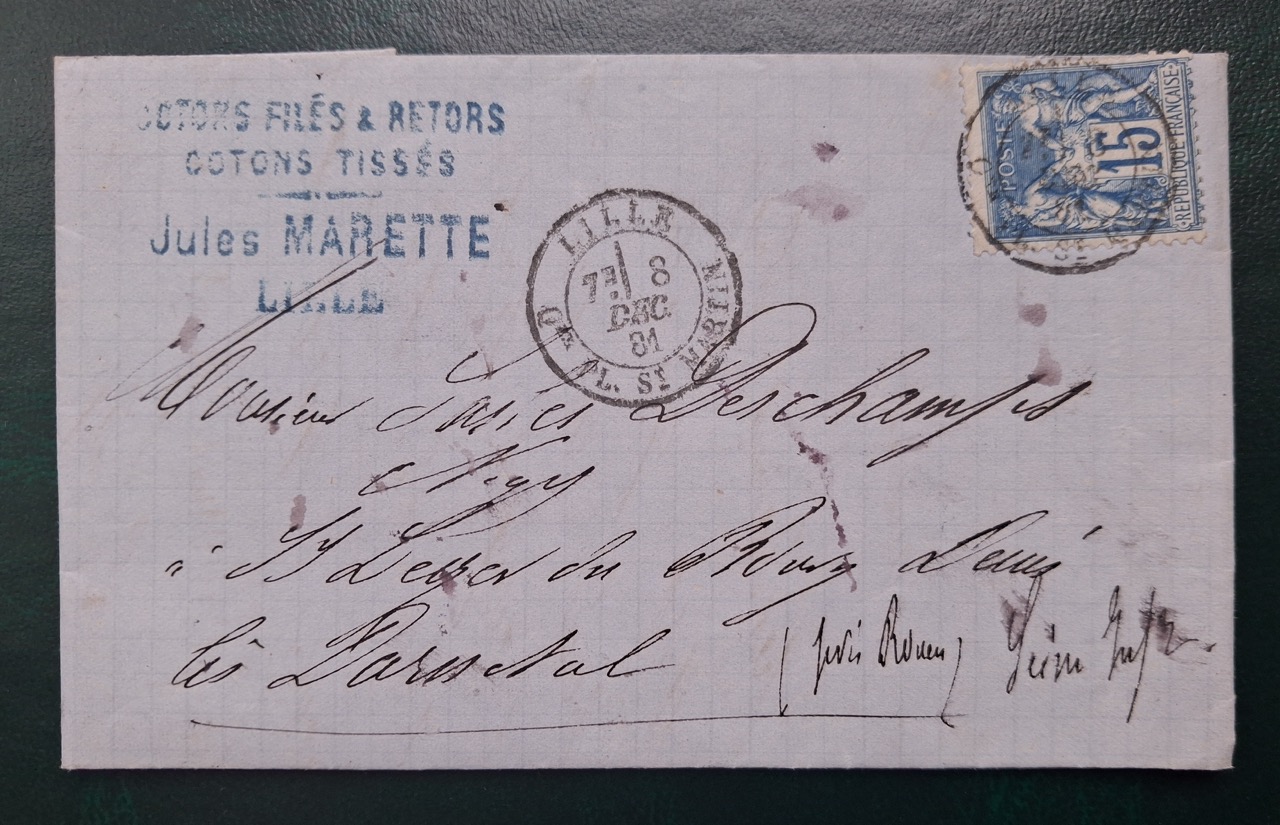 COTONS FILÉS & RETORS
COTONS TISSÉS
Jules MARETTE
LILLE
LILLE
7E 8
DEC.
81
PL. ST MARTIN
POSTES
15
REPUBLIQUE FRANÇAISE
Monsieur Deschamps
Ngt
à St Leger du Bourg Denis
lès Darnetal (près Rouen) Seine Infre